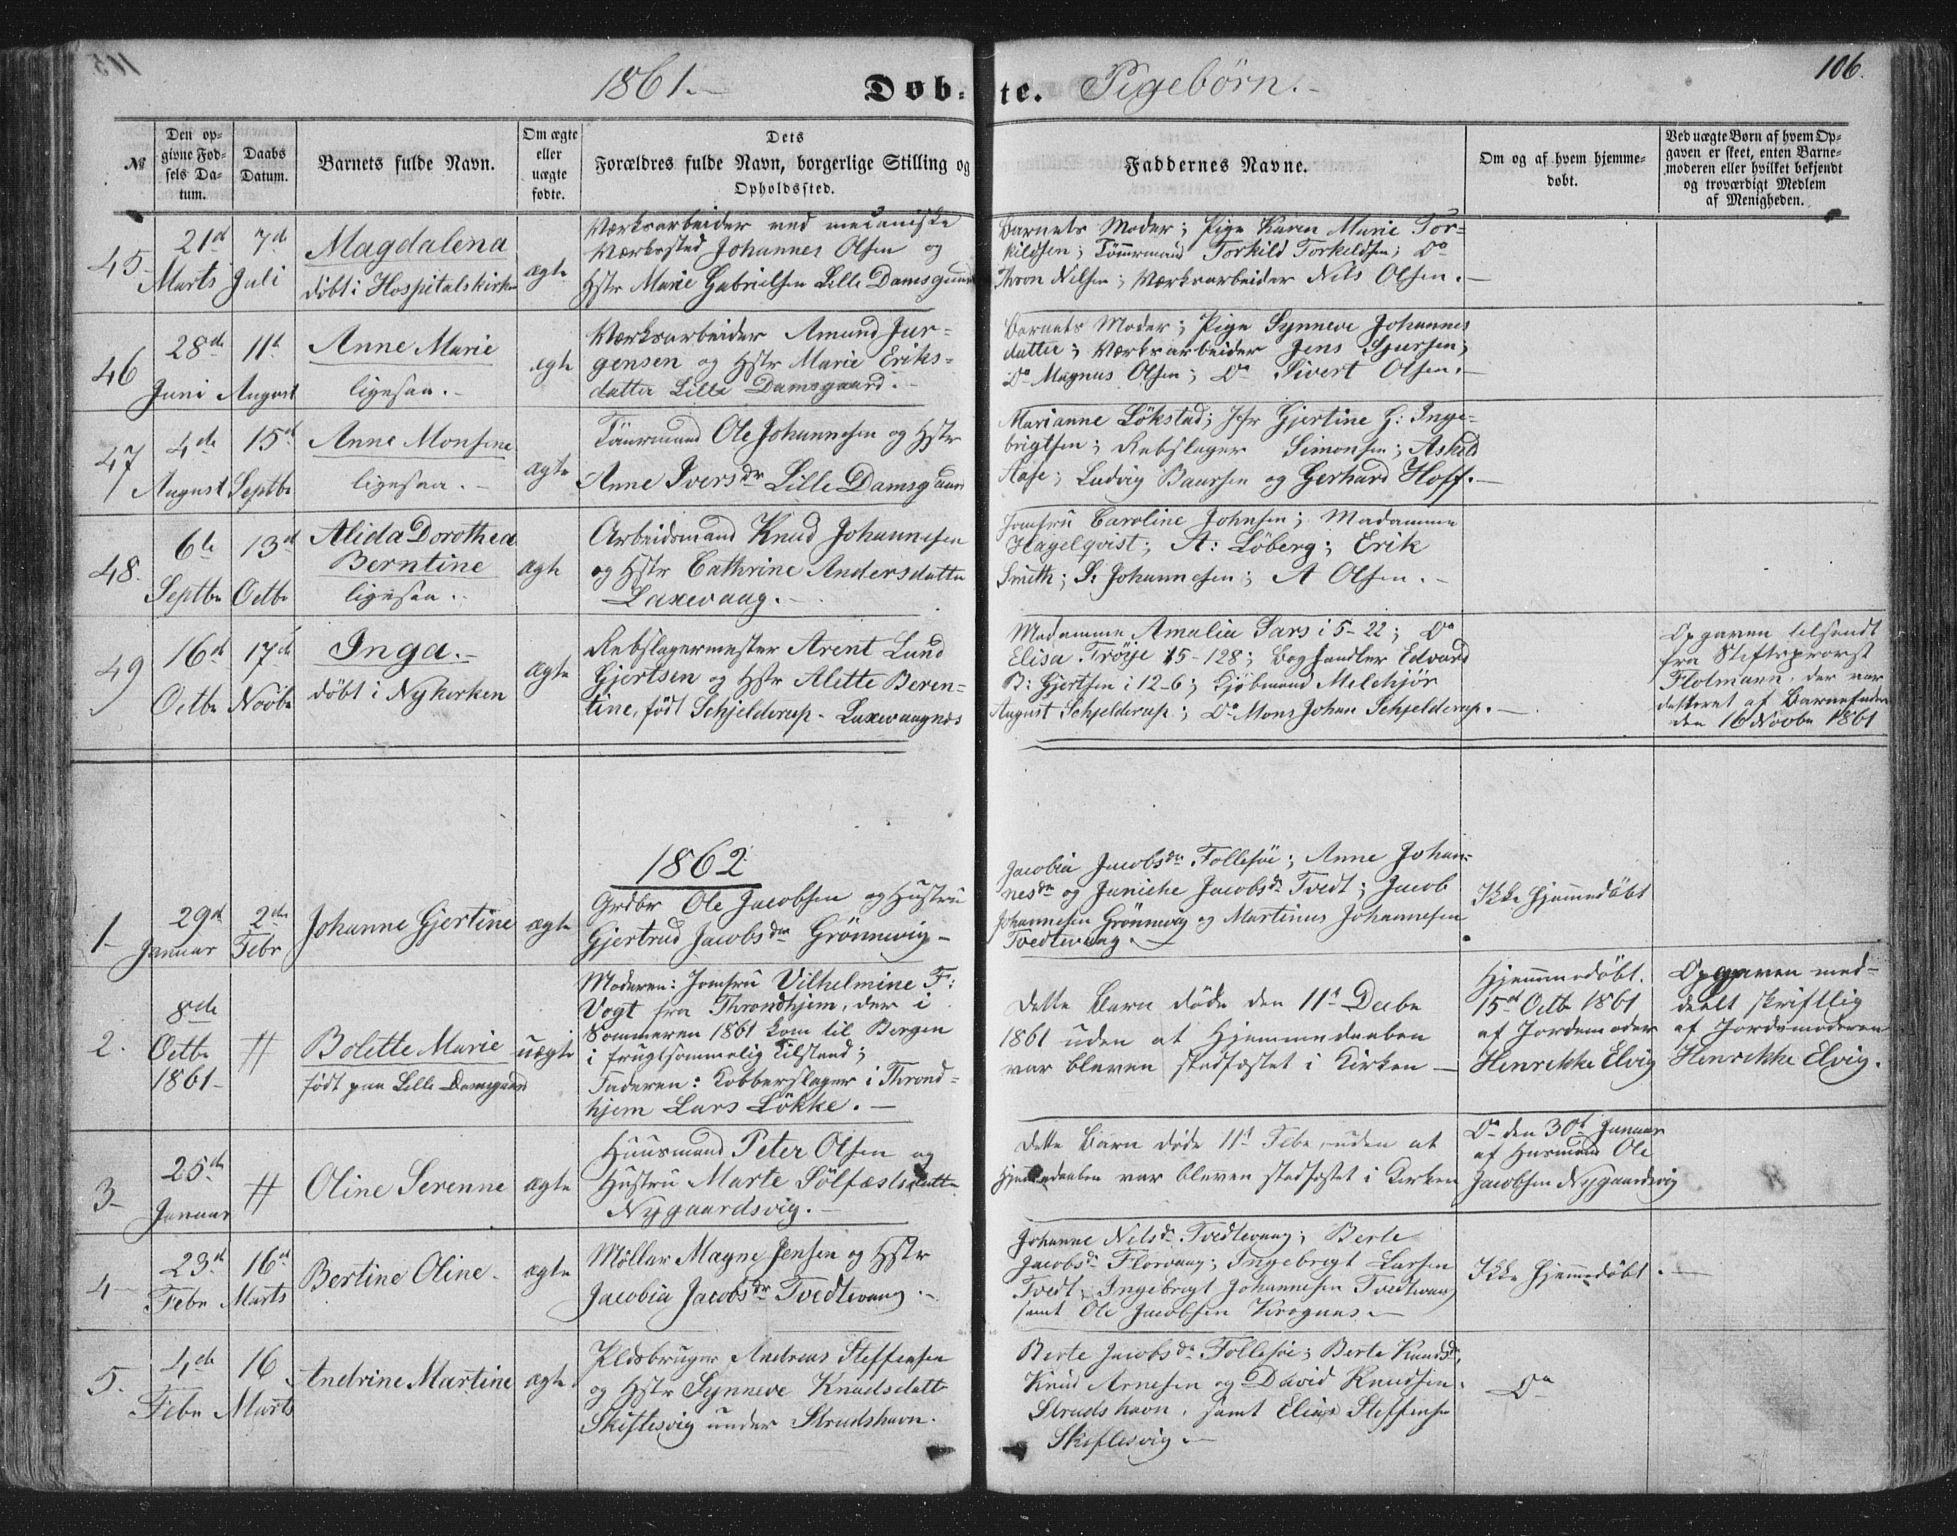 1861.- Døb-te. Pigebørn.-
106.
№
Den op-
givne Fød-
sels Da-
tum.
Daabs
Datum.
Barnets fulde Navn.
Om ægte
eller
uægte
fødte.
Dets
Forældres fulde Navn, borgerlige Stilling og
Opholdssted.
Faddernes Navne.
Om og af hvem hjemme-
døbt.
Ved uægte Børn af hvem Op-
gaven er skeet, enten Barne-
moderen eller hvilket bekjendt
og troværdigt Medlem
af Menigheden.
45
21d
Marts
7d
Juli
Magdalena
døbt i Hospitalskirken
ægte
Værksarbeider ved mecaniske
Værksted Johannes Olsen og
Hstr Marie Gabrielsen Lille Damsgaard
Barnets Moder; Pige Karen Marie Tor-
kildsen; Tømrmand Torkild Torkeldsen; Do
Thron Nilsen; Værksarbeider Nils Olsen.-
46
28d
Juni
11t
August
Anne Marie
ligesaa.-
ægte
Værksarbeider Amund Jur-
gensen og Hstr Marie Eriks-
datter Lille Damsgaard.-
Barnets Moder; Pige Synneve Johannes
datter; Værksarbeider Jens Sjursen;
Do Magnus Olsen; Do Sivert Olsen.-
47
4de
August
15d
Septbr
Anne Monsine
ligesaa.-
ægte
Tømrmand Ole Johannesen og Hstr
Anne Iversdr Lille Damsgaard
Marianne Løkstad; Jfr Gjertine G: Inge-
brigtsen; Rebslager Simonsen; Askild
Aase; Ludvig Baarsen og Gerhard Hoff.-
48.
6te
Septbr
13d
Octbr
Alida Dorothea
Berntine
ligesaa.-
ægte
Arbeidsmand Knud Johannesen
og Hstr Cathrine Andersdatter
Laxevaag.-
Jomfru Caroline Johnsen; Madamme
Hagelqvist; A: Løberg; Erik
Smith; S: Johannesen; A Olsen.-
49
16d
Octbr
17de
Novbr
Inga.-
døbt i Nykirken
ægte
Rebslagermester Arent Lund
Gjertsen og Hstr Alette Beren-
tine, født Schjelderup. Laxevaagnæs
Madamme Amalia Sars i 5-22; Do
Elisa Trøye 15-128; Boghandler Edvard
B: Gjertsen i 12-6; Kjøbmand Melchjør
August Schjelderup; Do Mons Johan Schjelderup.-
Opgaven tilsendt
fra Stiftsprovst
Flotmann, der var
dateret af Barnefader
den 16 Novbr 1861
1862
1-
29d
Januar
2den
Febr
Johanne Gjertine
ægte
Grdbr Ole Jacobsen og Hustru
Gjertrud Jacobsdr Grønnevig-
Jacobia Jacobsdr Follesøe; Anne Johan-
nesdr og Janiche Jacobsdr Tvedt; Jacob
Johannesen Grønnevig og Martinus Johannesen
Tvedtevaag.
Ikke hjemmedøbt
2.
8de
Octbr
1861-
#
Bolette Marie
født paa Lille Damsgaard
uægte
Moderen: Jomfru Vilhelmine F:
Vogt fra Throndhjem, der i
Sommeren 1861 kom til Bergen
i frugtsommelig Tilstand;
Faderen: Kobberslager i Thrond-
hjem Lars Løkke.-
Dette Barn døde den 11t Decbr
1861 uden at Hjemmedaaben
var bleven stadfæstet i Kirken-
Hjemmedøbt.
15d Octb 1861
af Jordemoder
Henrikke Elvig
Opgaven med-
deelt skriftlig
af Jordemoderen
Henrikke Elvig.
3-
25d
Januar
#
Oline Serenne
ægte
Huusmand Peter Olsen og
Hustru Marte Sølfæstsdatter
Nygaardsvig.-
Dette Barn døde 11t Febr uden at
Hjemmedaaben var bleven stadfæstet i Kirken
Do den 30t Januar
af Husmand Ole
Jacobsen Nygaardsvig
4
23d
Febr
16d
Marts
Bertine Oline.
ægte
Møller Magne Jensen og Hstr
Jacobia Jacobsdr Tvedtevaag.-
Johanne Nilsdr Tvedtevaag; Berte
Jacobsdr Florvaag; Ingebregt Larsen
Tvedt; Ingebregt Johannesen Tvedtevaag
samt Ole Jacobsen Kragnæs-
Ikke hjemmedøbt.-
5.
4de
Febr
16
Marts
Andrine Martine
ægte
Pldsbruger Andreas Steffensen
og Hstr Synneve Knudsdatter
Skiftesvig under Strudshavn.
Berte Jacobsdr Follesøe; Berte Knudsdr,
Knud Arnesen og David Knudsen
Strudshavn, samt Elias Steffensen
Skiftesvig.-
Do